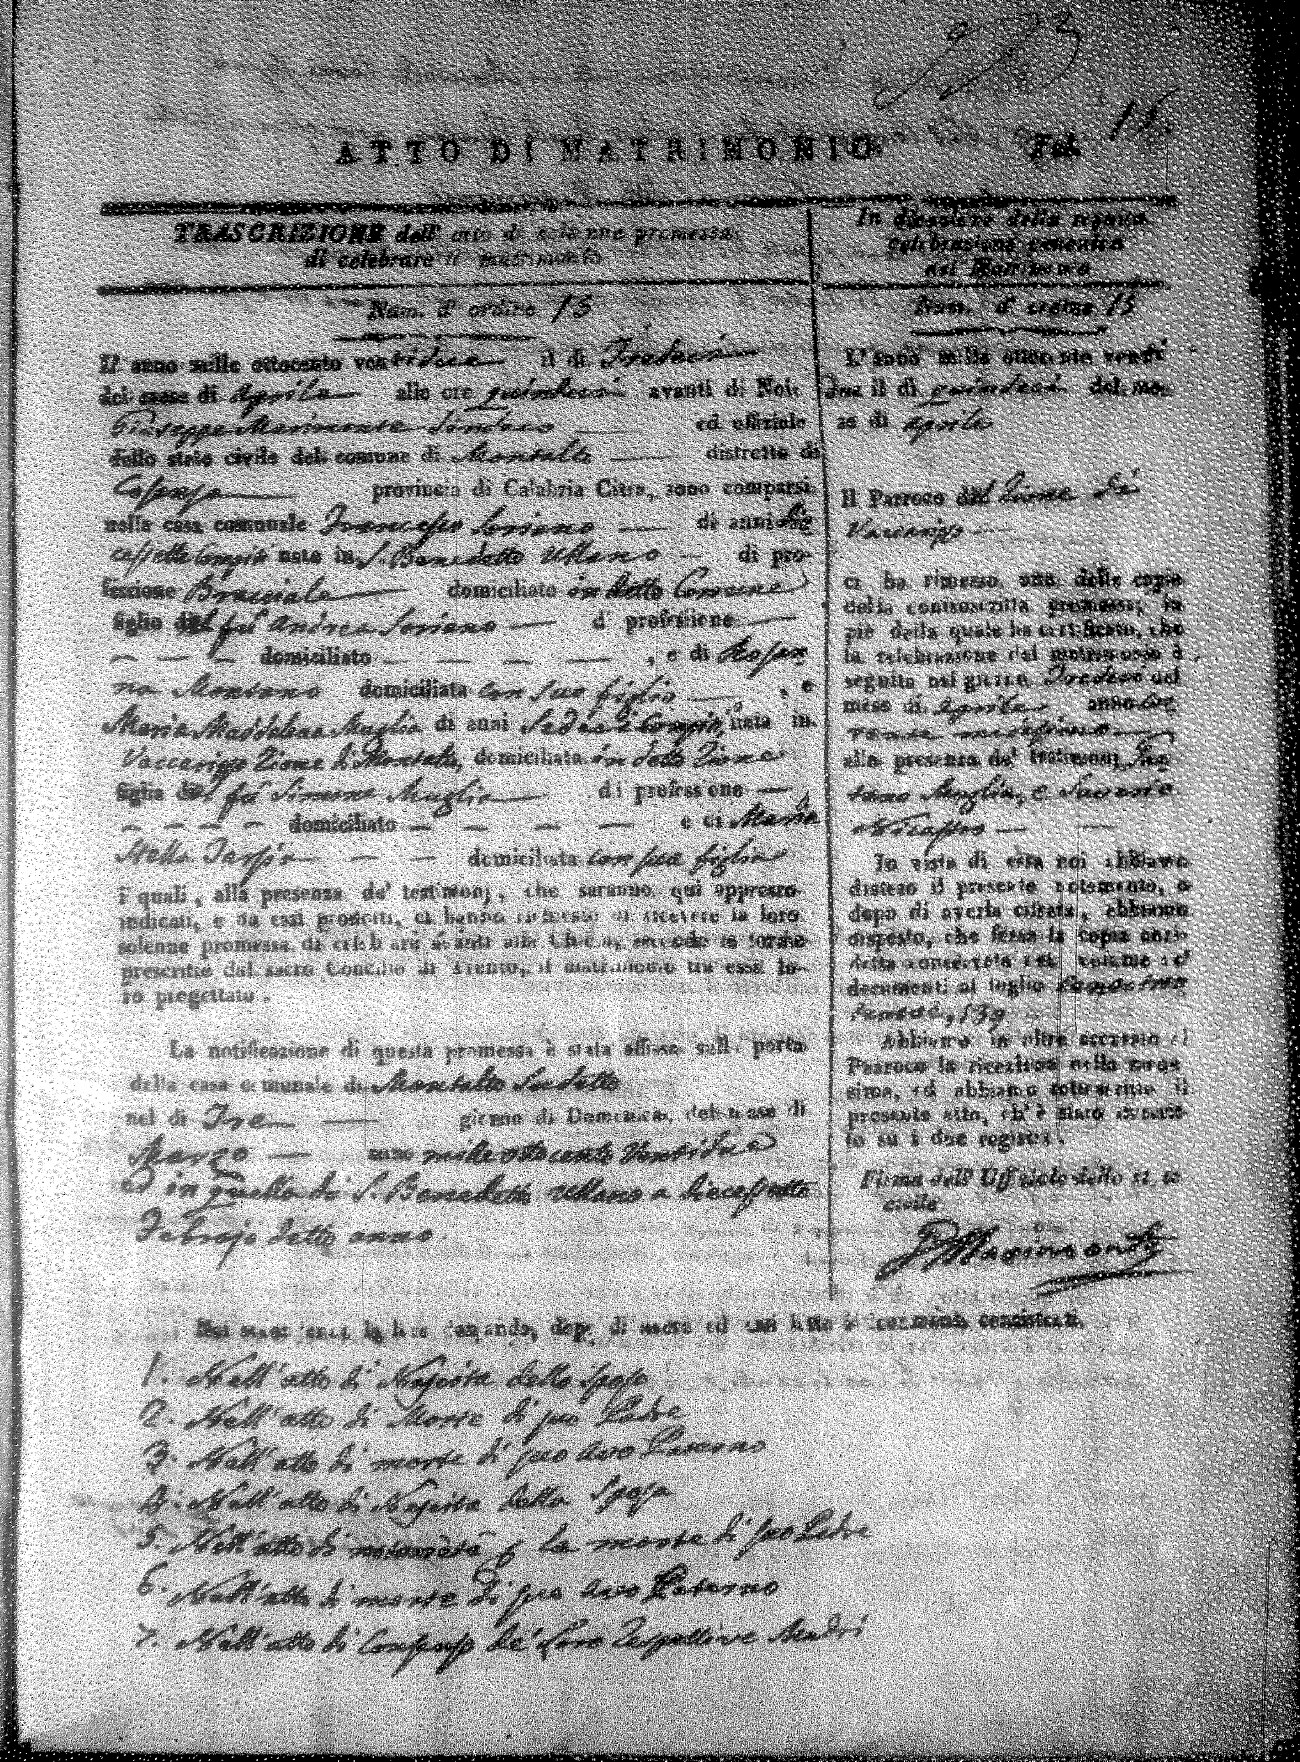 ATTO DI MATRIMONIO Fol. 15.
TRASCRIZIONE dell' atto di solenne promessa
di celebrare il matrimonio
Num. d' ordine 15
L' anno mille ottocento ventidue il di Tredeci
del mese di Aprile alle ore quindeci avanti di Noi
Giuseppe Marimonte Sindaco ed uffiziale
dello stato civile del comune di Montalto distretto di
Cosenza provincia di Calabria Citra, sono comparsi
nella casa comunale Francesco Soriano di anni
compiti nato in S. Benedetto Ullano di pro-
fessione Bracciale domiciliato in detto Comune
figlio del fu Andrea Soriano d' professione
domiciliato , e di Rosan
na Montano domiciliata con suo figlio , e
Maria Maddalena Muglia di anni Sedeci compiti, nata in
Vaccarizzo Rione di Montalto, domiciliata in detto Rione
figlia del fu Simone Muglia di professione
domiciliato e di Maria
Stella domiciliata con sua figlia
i quali, alla presenza de' testimonj, che saranno qui appresso
indicati, e da essi prodotti, ci hanno richiesto di ricevere la loro
solenne promessa di celebrare avanti alla Chiesa, secondo le forme
prescritte dal sacro Concilio di Trento, il matrimonio tra essi lo-
ro progettato.
La notificazione di questa promessa è stata affissa sulla porta
della casa comunale di Montalto Sudetto
nel di Tre giorno di Domenica, del mese di
Marzo anno mille ottocento Ventidue
ed in quella di S. Benedetto Ullano a diecessette
Febrajo detto anno.
In dicontro della seguita
celebrazione canonica
del Matrimonio
Num. d' ordine 15
L' anno mille ottocento venti
due il di quindeci del me-
se di aprile
Il Parroco del Rione di
Vaccarizzo
ci ha rimesso una delle copie
della controscritta promessa, in
piè della quale ha certificato, che
la celebrazione del matrimonio è
seguita nel giorno Tredeci del
mese di Aprile anno cor
rente medesimo
alla presenza de' testimonj
tano Muglia, e Saverio
In vista di essa noi abbiamo
disteso il presente notamento, e
dopo di averla cifrata, abbiamo
disposto, che fosse la copia anzi-
detta conservata nel volume de'
documenti al foglio
139
Abbiamo in oltre accusato al
Parroco la ricezione della mede-
sima, ed abbiamo sottoscritto il
presente atto, ch' è stato inscrit-
to su i due registri.
Firma dell' Uffiziale dello stato
civile
G Marimonte
Noi secondando la loro domanda, dopo di aver ad essi letto i documenti consistenti.
1. Nell' atto di Nascita dello Sposo
2. Nell' atto di Morte di suo Padre
3. Nell' atto di morte di suo avo Paterno
4. Nell' atto di Nascita della Sposa
5. Nell' atto di la morte di suo Padre
6. Nell' atto di morte di suo avo Paterno
7. Nell' atto di Consenso de' Loro respettive Madri